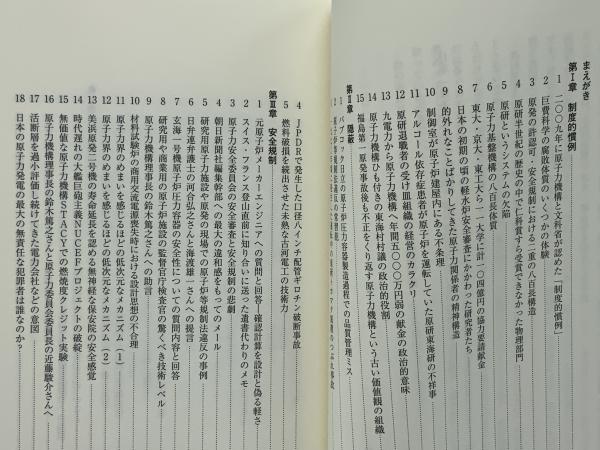 まえがき
第Ⅰ章 制度的慣例
1 二〇〇九年に原子力機構と文科省が認めた「制度的慣例」
2 巨費科学の腐敗体質のいくつかの体験
3 原発の許認可・安全規制における二重の八百長構造
4 原研半世紀の歴史の中で仁科賞すら受賞できなかった物理部門
5 原研というシステムの欠陥
6 原子力基盤機構の八百長体質
7 東大・京大・東工大ら一一大学に計一〇四億円の協力要請献金
8 日本の初期の頃の軽水炉安全審査にかかわった研究者たち
9 的外れなことばかりしてきた原子力関係者の精神構造
10 制御室が原子炉建屋内にある不条理
11 アルコール依存症患者が原子炉を運転していた原研東海研の不祥事
12 原研退職者の受け皿組織の経営のカラクリ
13 九電力から原子力機構へ年間五〇〇〇万円弱の献金の政治的意味
14 原子力機構ひも付きの東海村村議の政治的役割
15 福島第一原発事故後も不正をくり返す原子力機構という古い価値観の組織
第Ⅱ章 隠蔽
1 バブコック日立の原子炉圧力容器製造過程での品質管理ミス
4 JPDRで発生した口径八インチ配管ギロチン破断事故
5 燃料破損を続出させた未熟な古河電工の技術力
第Ⅲ章 安全規制
1 元原子炉メーカーエンジニアへの質問と回答－確認計算を設計と偽る軽さ
2 スイス・フランス登山直前に知り合いに送った遺書代わりのメモ
3 原子力安全委員会の安全審査と安全規制の悲劇
4 朝日新聞社編集幹部への最大の違和感をもってのメール
5 研究用原子力施設や原発の現場での原子炉等規制法違反の事例
6 日弁連弁護士の河合弘之さんと海渡雄一さんへの提言
7 玄海一号機原子炉圧力容器の安全性についての質問内容と回答
8 研究用や商業用の原子炉施設の監督官庁検査官の驚くべき技術レベル
9 原子力機構理事長の鈴木篤之さんへの助言
10 材料試験炉の商用交流電源喪失時における設計思想の不合理
11 原子力界のめまいを感じるほどの低次元なメカニズム（1）
12 原子力界のめまいを感じるほどの低次元なメカニズム（2）
13 美浜原発二号機の寿命延長を認める無神経な保安院の安全感覚
14 時代遅れの大艦巨砲主義NUCEFプロジェクトの破綻
15 無価値な原子力機構STACYでの燃焼度クレジット実験
16 原子力機構理事長の鈴木篤之さんと原子力委員会委員長の近藤駿介さんへ
17 活断層を過小評価し続けてきた電力会社などの意図
18 日本の原子力発電の最大の無責任な犯罪者は誰なのか？